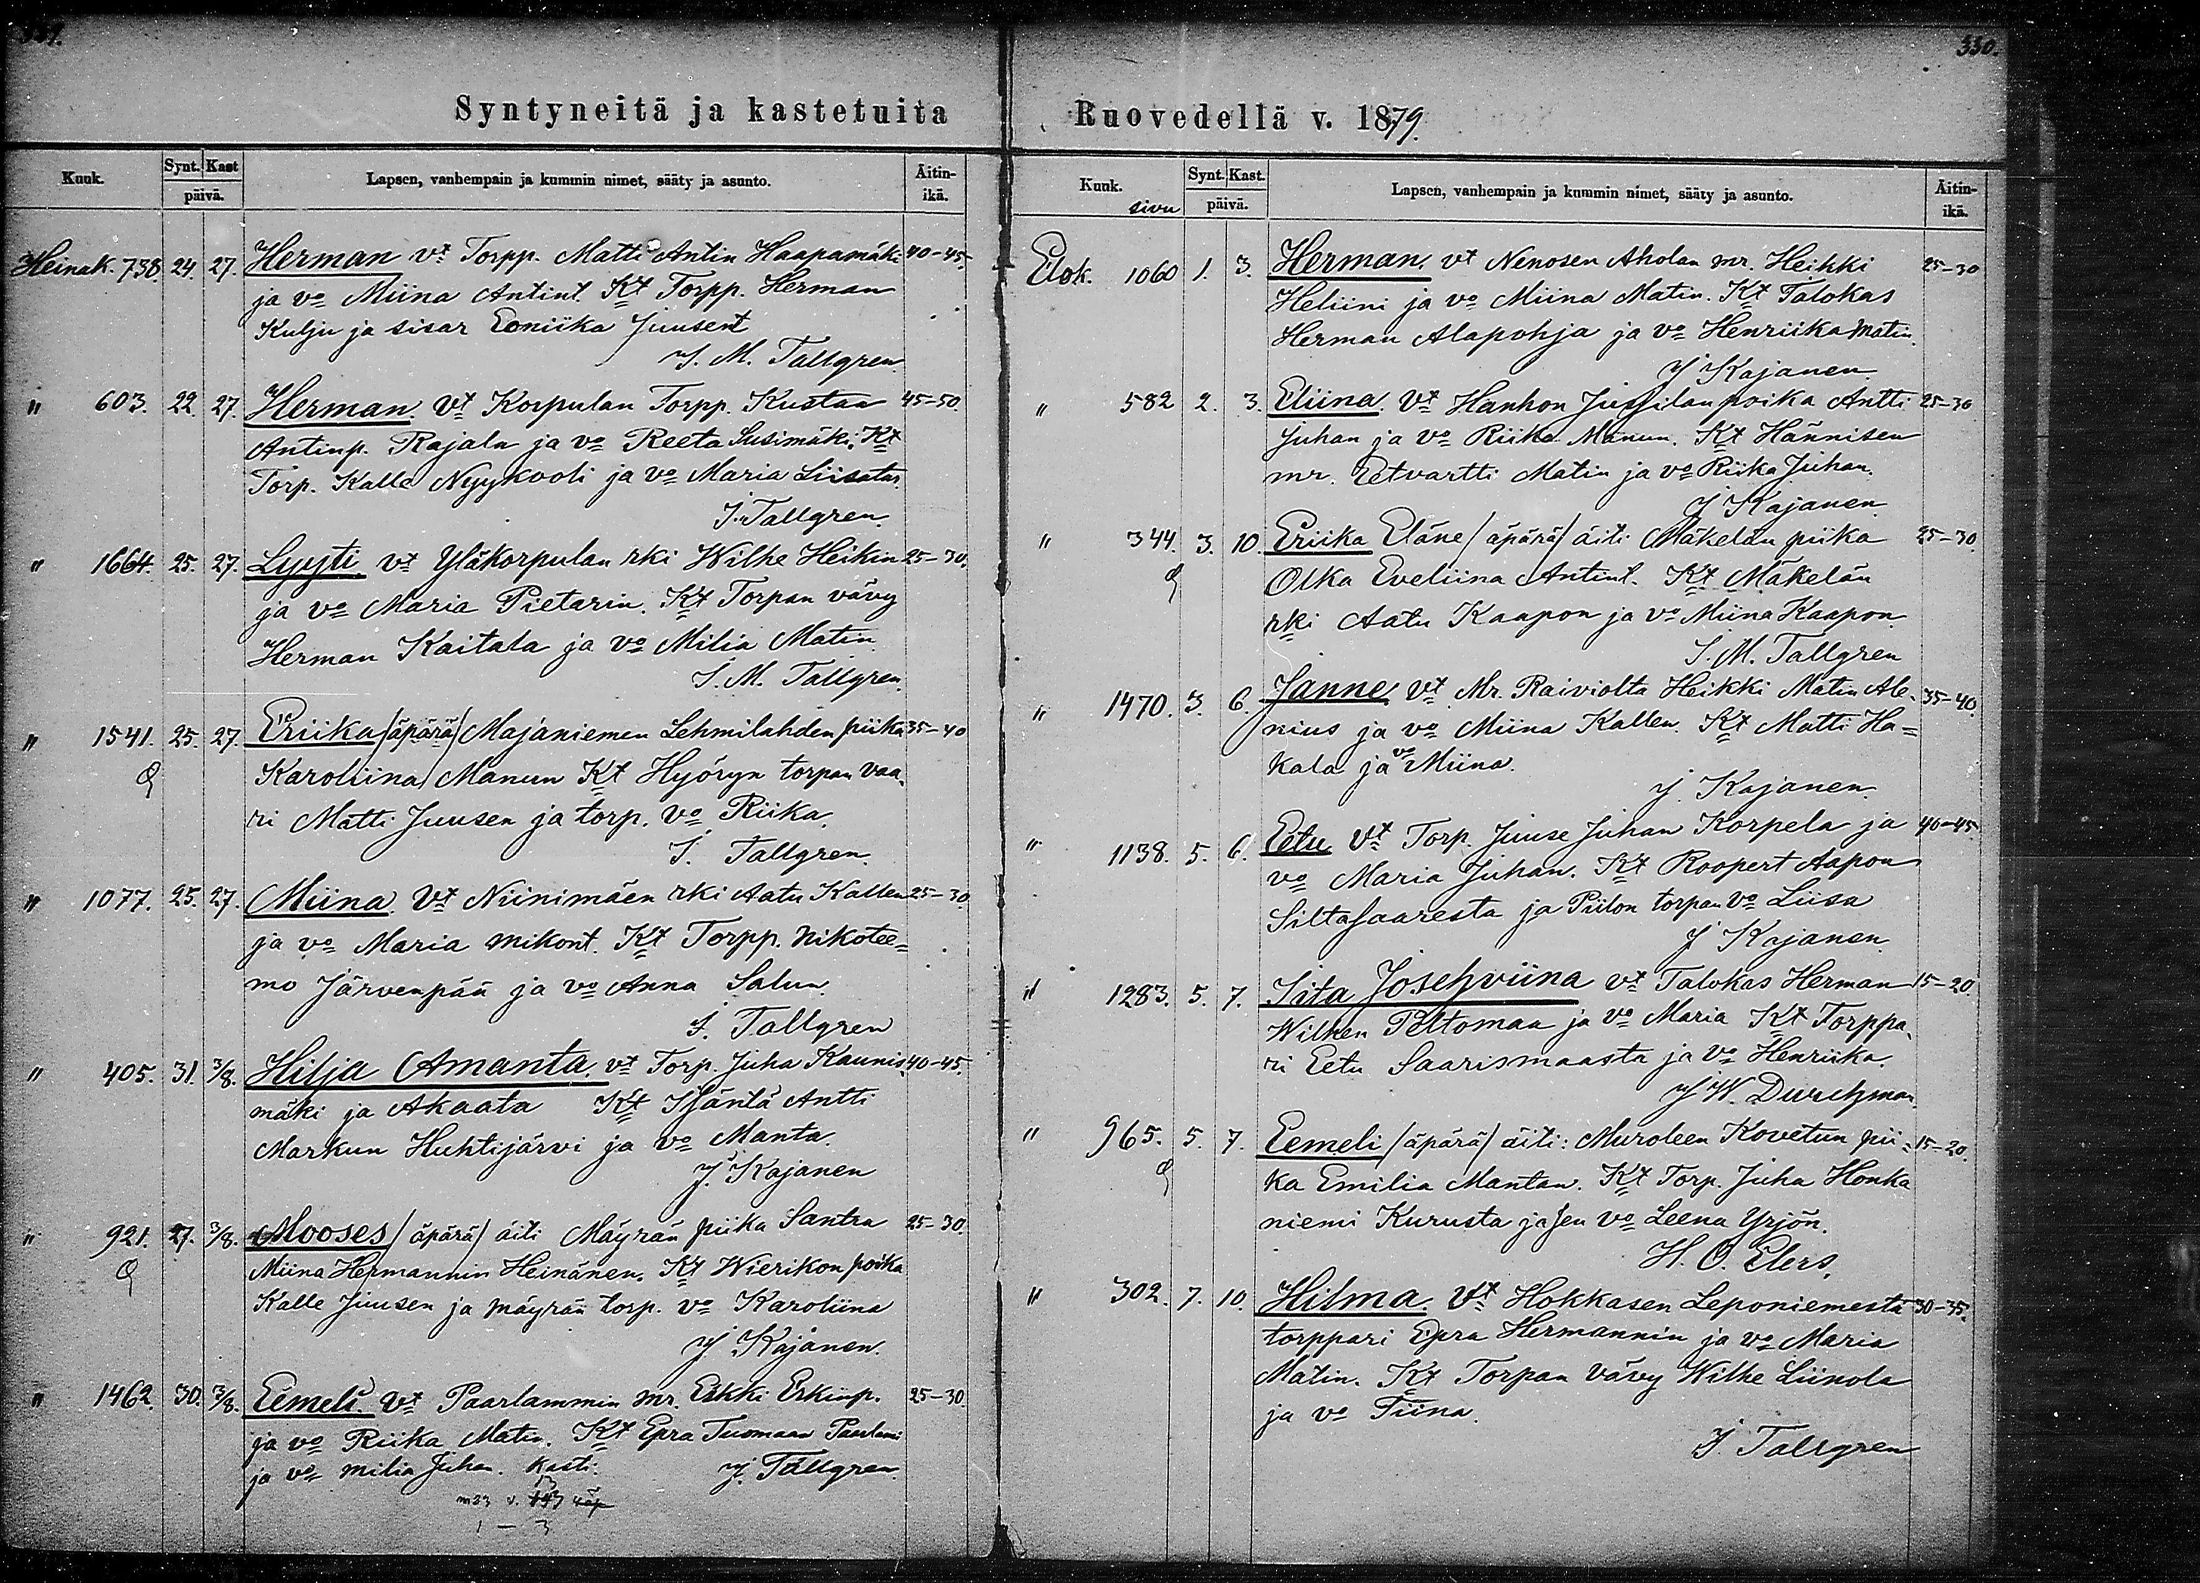 Syntyneitä ja kastetuita
Kuuk.
Synt. Kast
päivä.
Lapsen, vanhempain ja kummin nimet, sääty ja asunto.
Äitin-
ikä.
Heinäk. 738. 24. 27. Herman vt Torpp. Matti Antin Haapamäki 40-45.
ja vo Miina Antint. Kt Torpp. Herman
Kulju ja sisar Eoniika Juusent
J. M. Tallgren
" 603. 22. 27. Herman. Vt Korpulan Torpp. Kustaa 45-50.
Antinp. Rajala ja vo Reeta Susimäki. Kt
Torp. Kalle Nyykooli ja vo Maria Liisatar
J. Tallgren.
" 1664. 25. 27. Lyyti vt Yläkorpulan rki Wilhe Heikin 25-30.
ja vo Maria Pietarin. Kt Torpan vävy
Herman Kaitala ja vo Milia Matin.
J. M. Tallgren.
" 1541. 25. 27. Eriika /äpärä/ Majaniemen Lehmilahden piika 35-40
Karoliina Manun Kt Hyöryn torpan vaa-
ri Matti Juusen ja torp. vo Riika.
J. Tallgren.
" 1077. 25. 27. Miina. Vt Niinimäen rki Aatu Kallen 25-30.
ja vo Maria Mikont. Kt Torpp. Nikotee=
mo Järvenpää ja vo Anna Salun.
J. Tallgren
" 405. 31. 3/8. Hilja Amanta. vt Torp. Juha Kaunis- 40-45.
mäki ja Akaata Kt Häntä Antti
Markun Huhtijärvi ja vo Manta.
J. Kajanen
" 921. 27. 3/8. Mooses /äpärä/ äiti Mäyrän piika Santra 25-30.
Miina Hermannin Heinänen. Kt Wierikon poika
Kalle Juusen ja Mäyrän torp. vo Karoliina
J Kajanen.
" 1462. 30. 3/8. Eemeli. Vt Paarlammin mr. Erkki Erkinp. 25-30
ja vo Riika Matin. Kt Epra Tuomaan
ja vo Milia Juhan. Kasti.
J. Tallgren.
1 - 3
330.
Ruovedellä v. 1879.
Kuuk.
sivu
Synt. Kast.
päivä.
Lapsen, vanhempain ja kummin nimet, sääty ja asunto.
Äitin-
ikä.
Elok. 1060 1. 3. Herman. vt Nenosen Aholan mr. Heikki 25-30
Heliini ja vo Miina Matin. Kt Talokas
Herman Alapohja ja vo Henriika Matin.
J Kajanen
" 582 2. 3. Eliina. Vt Hanhon Jussilan poika Antti 25-30
Juhan ja vo Riika Manun. Kt Hännisen
mr. Eetvartti Matin ja vo Riika Juhan.
J Kajanen
" 344. 3. 10. Eriika Eläne /äpärä/ äiti Mäkelän piika 25-30.
Olka Eveliina Antint. Kt Mäkelän
rki Aatu Kaapon ja vo Miina Kaapon.
J. M. Tallgren
" 1470. 3. 6. Janne. vt Mr. Raiviolta Heikki Matin Ale- 35-40.
nius ja vo Miina Kallen. Kt Matti Ha=
kala ja vo Miina.
J. Kajanen.
" 1138. 5. 6. Eetu Vt Torp. Juuse Juhan Korpela ja 40-45
vo Maria Juhan. Kt Roopert Aapon
Siltasaaresta ja Piilon torpan vo Liisa
J Kajanen.
" 1283. 5. 7. Iita Josehviina vt Talokas Herman 15-20.
Wilhen Peltomaa ja vo Maria Kt Torppa-
ri Eetu Saarismaasta ja vo Henriika.
J W. Durchman.
" 965. 5. 7. Eemeli /äpärä/ äiti: Muroleen Kovetun pii= 15-20.
ka Emilia Mantan. Kt Torp. Juha Honka
niemi Kurusta ja sen vo Leena Yrjön.
H. O. Elers.
" 302. 7. 10. Hilma. Vt Hokkasen Leponiemestä 30-35.
torppari Epra Hermannin ja vo Maria
Matin. Kt Torpan vävy Wilhe Liinola
ja vo Tiina.
J. Tallgren